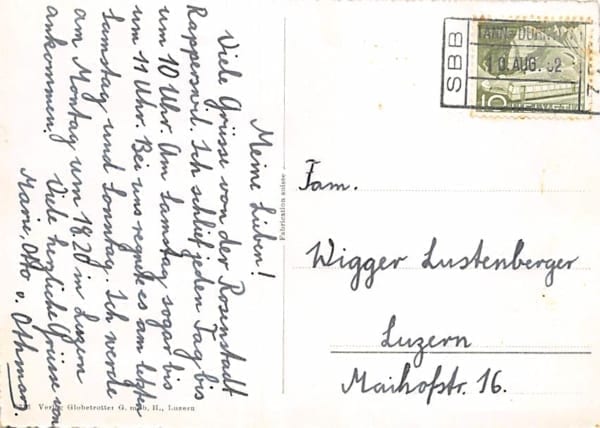 Meine Lieben!
Viele Grüsse von der Rosenstadt
Rapperswil. Ich schlief jeden Tag bis
um 10 Uhr. Am Samstag sogar bis
um 11 Uhr. Bei uns regnete es am letzten
Samstag und Sonntag. Ich werde
am Montag um 18.20 in Luzern
ankommen. Viele herzliche Grüsse von
Marie, Otto u. Othmar.
Fabrication suisse
SBB
10. AUG. 52
10 HELVETIA
Fam.
Wigger Lustenberger
Luzern
Maihofstr. 16.
Verlag Globetrotter G. m. b. H., Luzern